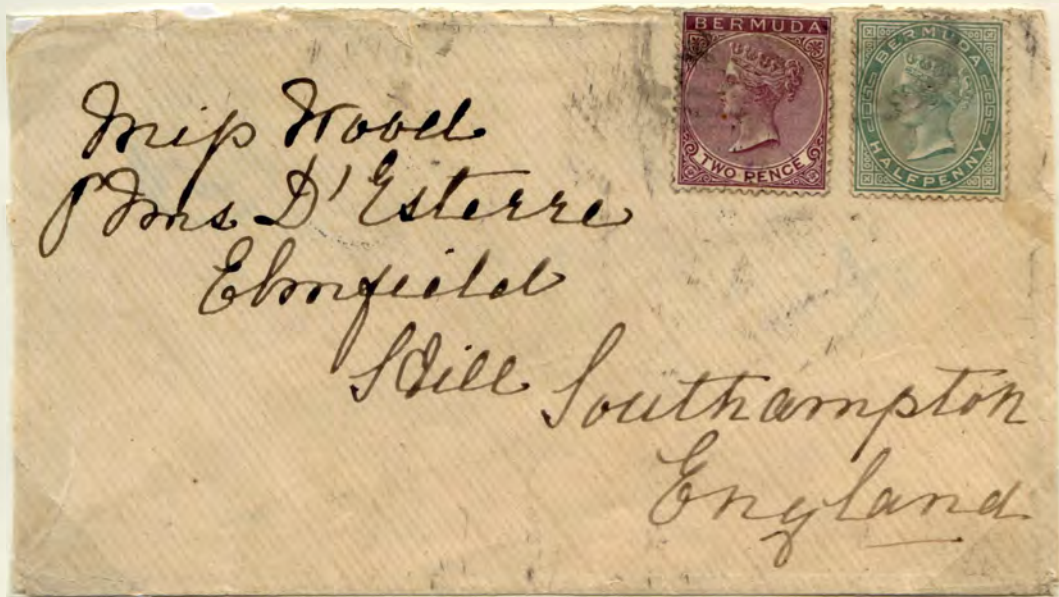 BERMUDA
TWO PENCE
BERMUDA
HALFPENNY
Miss Wood
Mrs D'Esterre
Elmfield
Hill Southampton
England